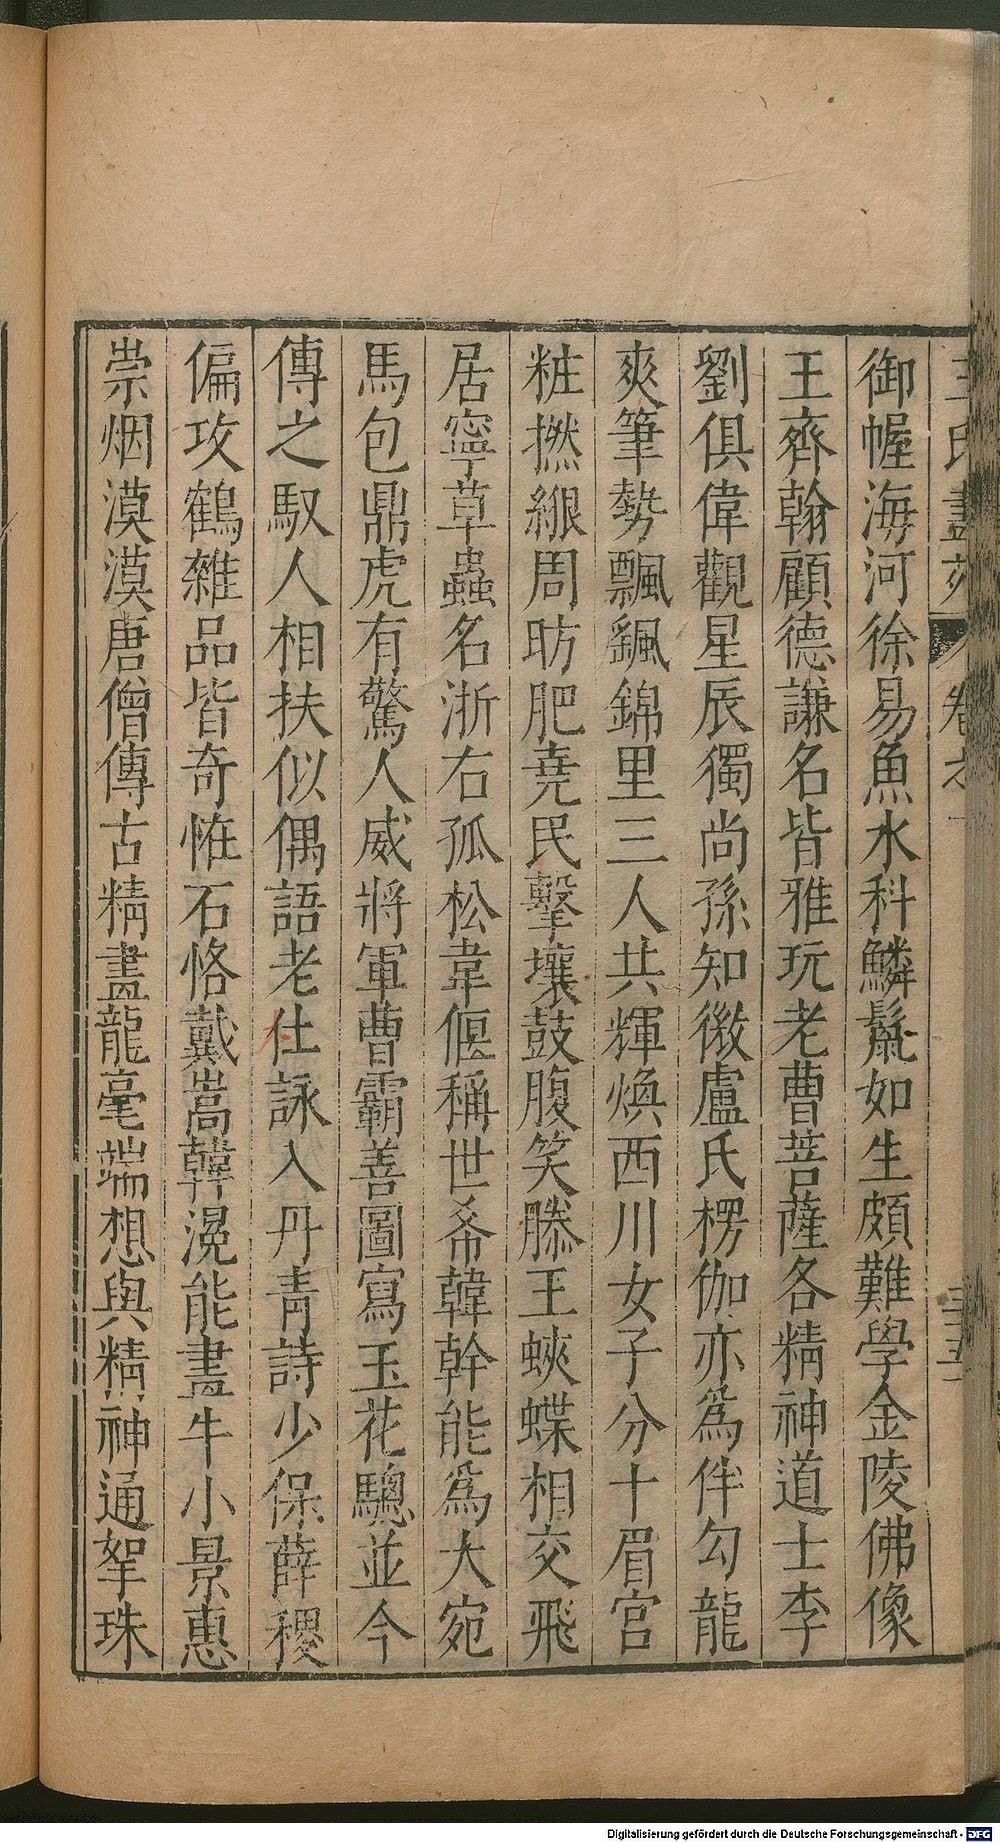 王氏畫苑 卷之一 三十五
御幄海河徐易魚水科鱗鬣如生頗難學金陵佛像
王齊翰顧德謙名皆雅玩老曹菩薩各精神道士李
劉俱偉觀星辰獨尚孫知微盧氏楞伽亦爲伴勾龍
爽筆勢飄颻錦里三人共輝煥西川女子分十眉宮
粧撚綠周昉肥堯民擊壤鼓腹笑滕王蛺蝶相交飛
居寧草蟲名浙右孤松韋偃稱世希韓幹能爲大宛
馬包鼎虎有驚人威將軍曹霸善圖寫玉花驄並今
傳之馭人相扶似偶語老仕詠入丹青詩少保薛稷
偏攻鶴雜品皆奇惟石恪戴嵩韓滉能畫牛小景惠
崇烟漠漠唐僧傳古精畫龍毫端想與精神通拏珠
Digitalisierung gefördert durch die Deutsche Forschungsgemeinschaft - DFG